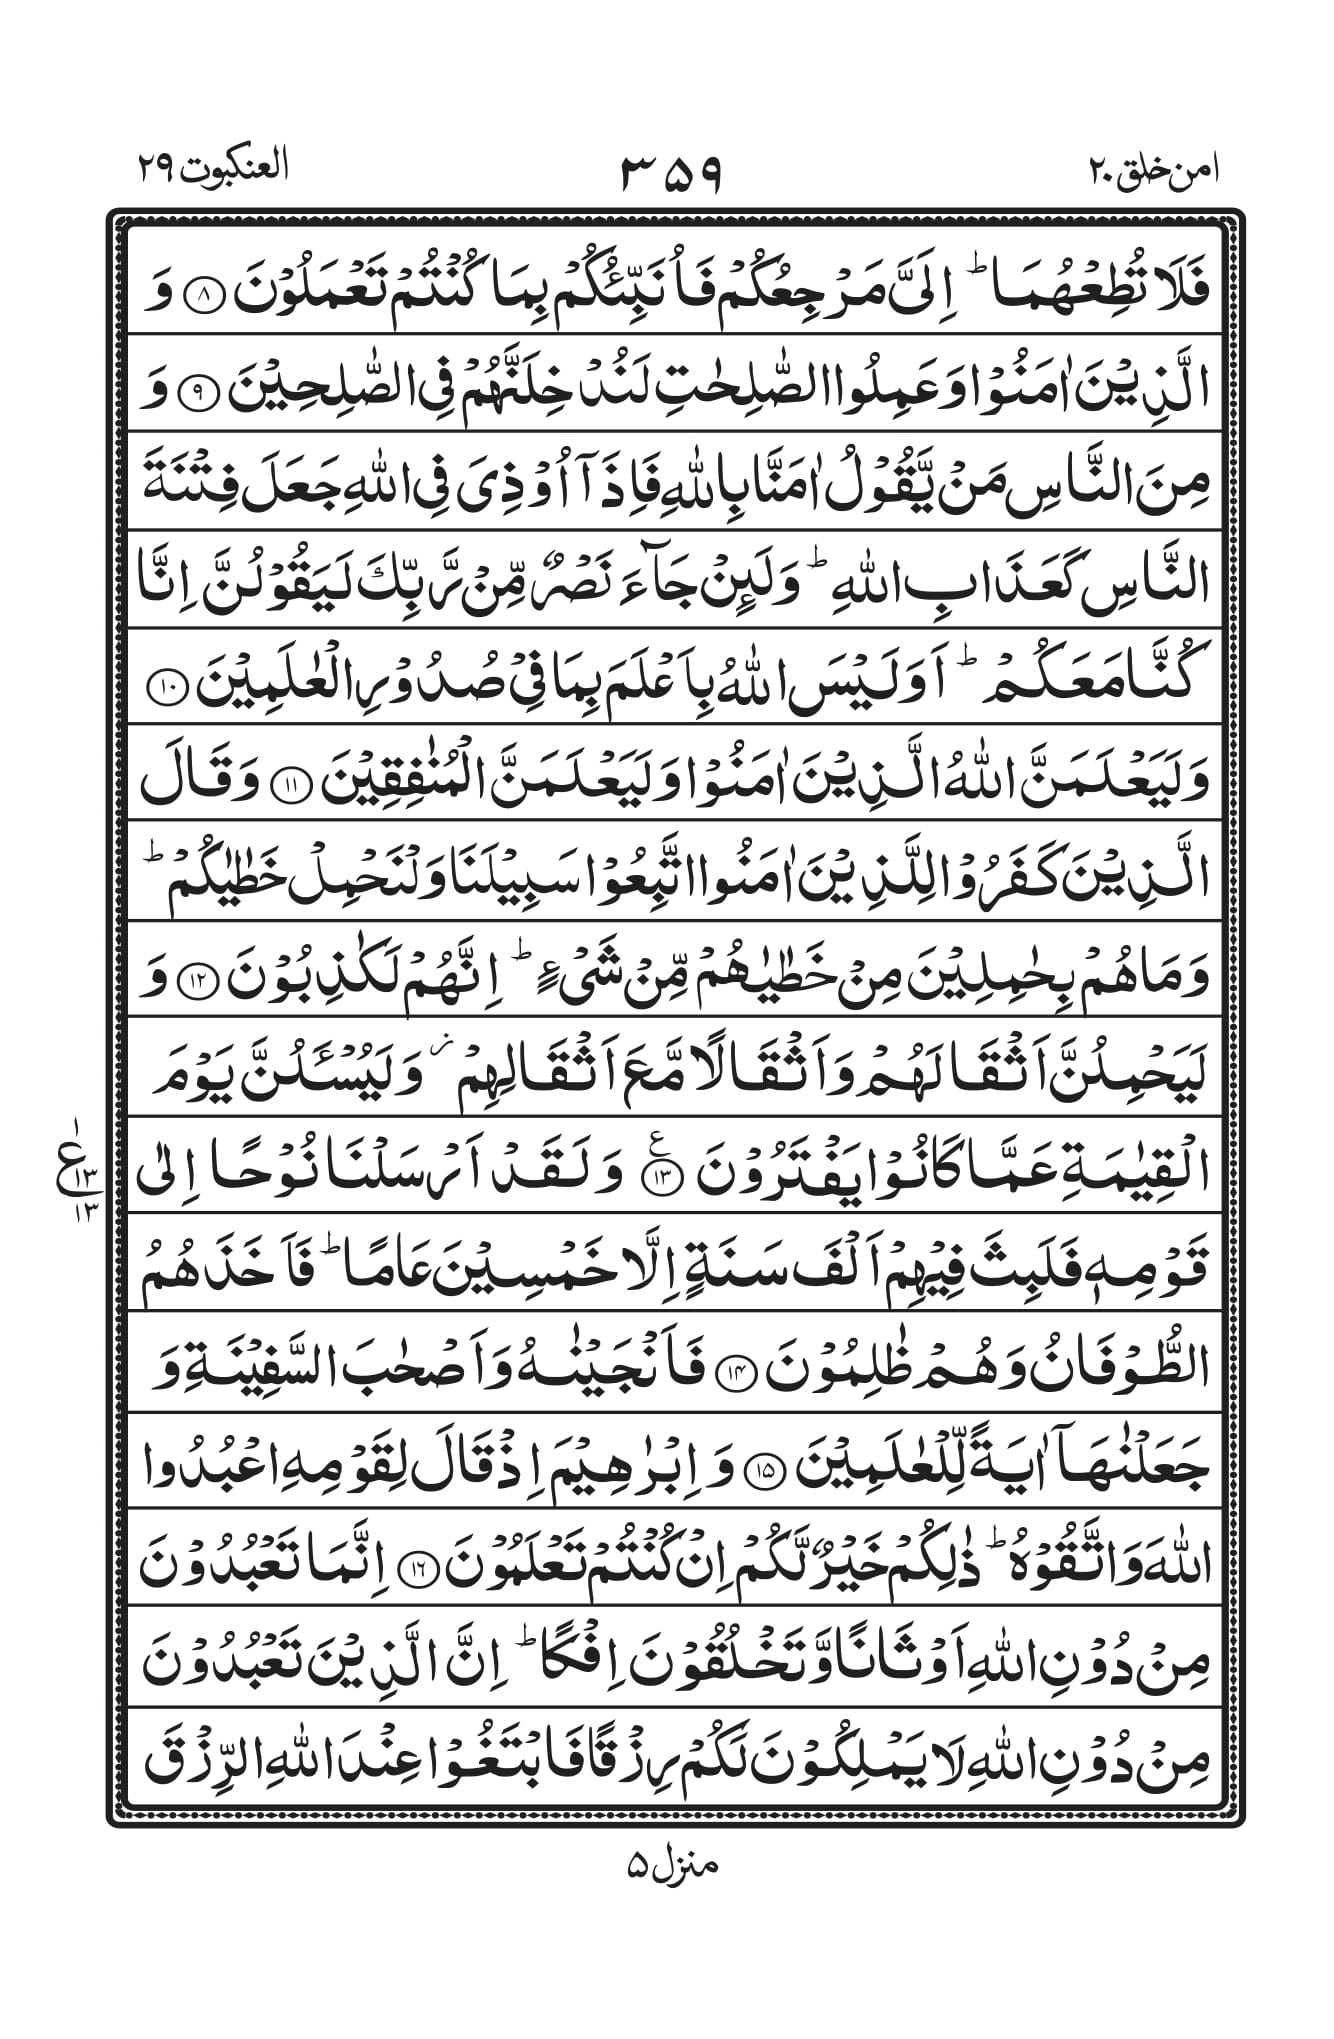 امن خلق ۲۰
۳۵۹
العنکبوت ۲۹
فَلَا تُطِعْهُمَا ؕ اِلَیَّ مَرْجِعُكُمْ فَاُنَبِّئُكُمْ بِمَا كُنْتُمْ تَعْمَلُوْنَ ۝۸ وَ
الَّذِیْنَ اٰمَنُوْا وَعَمِلُوا الصّٰلِحٰتِ لَنُدْخِلَنَّهُمْ فِی الصّٰلِحِیْنَ ۝۹ وَ
مِنَ النَّاسِ مَنْ یَّقُوْلُ اٰمَنَّا بِاللّٰهِ فَاِذَاۤ اُوْذِیَ فِی اللّٰهِ جَعَلَ فِتْنَةَ
النَّاسِ كَعَذَابِ اللّٰهِ ؕ وَلَىِٕنْ جَآءَ نَصْرٌ مِّنْ رَّبِّكَ لَیَقُوْلُنَّ اِنَّا
كُنَّا مَعَكُمْ ؕ اَوَلَیْسَ اللّٰهُ بِاَعْلَمَ بِمَا فِیْ صُدُوْرِ الْعٰلَمِیْنَ ۝۱۰
وَلَیَعْلَمَنَّ اللّٰهُ الَّذِیْنَ اٰمَنُوْا وَلَیَعْلَمَنَّ الْمُنٰفِقِیْنَ ۝۱۱ وَقَالَ
الَّذِیْنَ كَفَرُوْا لِلَّذِیْنَ اٰمَنُوا اتَّبِعُوْا سَبِیْلَنَا وَلْنَحْمِلْ خَطٰیٰكُمْ ؕ
وَمَا هُمْ بِحٰمِلِیْنَ مِنْ خَطٰیٰهُمْ مِّنْ شَیْءٍ ؕ اِنَّهُمْ لَكٰذِبُوْنَ ۝۱۲ وَ
لَیَحْمِلُنَّ اَثْقَالَهُمْ وَاَثْقَالًا مَّعَ اَثْقَالِهِمْ ؗ وَلَیُسْـَٔلُنَّ یَوْمَ
الْقِیٰمَةِ عَمَّا كَانُوْا یَفْتَرُوْنَ ۝۱۳ ع وَلَقَدْ اَرْسَلْنَا نُوْحًا اِلٰی
ع ۱۳ ۱ ۱۳
قَوْمِهٖ فَلَبِثَ فِیْهِمْ اَلْفَ سَنَةٍ اِلَّا خَمْسِیْنَ عَامًا ؕ فَاَخَذَهُمُ
الطُّوْفَانُ وَهُمْ ظٰلِمُوْنَ ۝۱۴ فَاَنْجَیْنٰهُ وَاَصْحٰبَ السَّفِیْنَةِ وَ
جَعَلْنٰهَاۤ اٰیَةً لِّلْعٰلَمِیْنَ ۝۱۵ وَاِبْرٰهِیْمَ اِذْ قَالَ لِقَوْمِهِ اعْبُدُوا
اللّٰهَ وَاتَّقُوْهُ ؕ ذٰلِكُمْ خَیْرٌ لَّكُمْ اِنْ كُنْتُمْ تَعْلَمُوْنَ ۝۱۶ اِنَّمَا تَعْبُدُوْنَ
مِنْ دُوْنِ اللّٰهِ اَوْثَانًا وَّتَخْلُقُوْنَ اِفْكًا ؕ اِنَّ الَّذِیْنَ تَعْبُدُوْنَ
مِنْ دُوْنِ اللّٰهِ لَا یَمْلِكُوْنَ لَكُمْ رِزْقًا فَابْتَغُوْا عِنْدَ اللّٰهِ الرِّزْقَ
منزل ۵